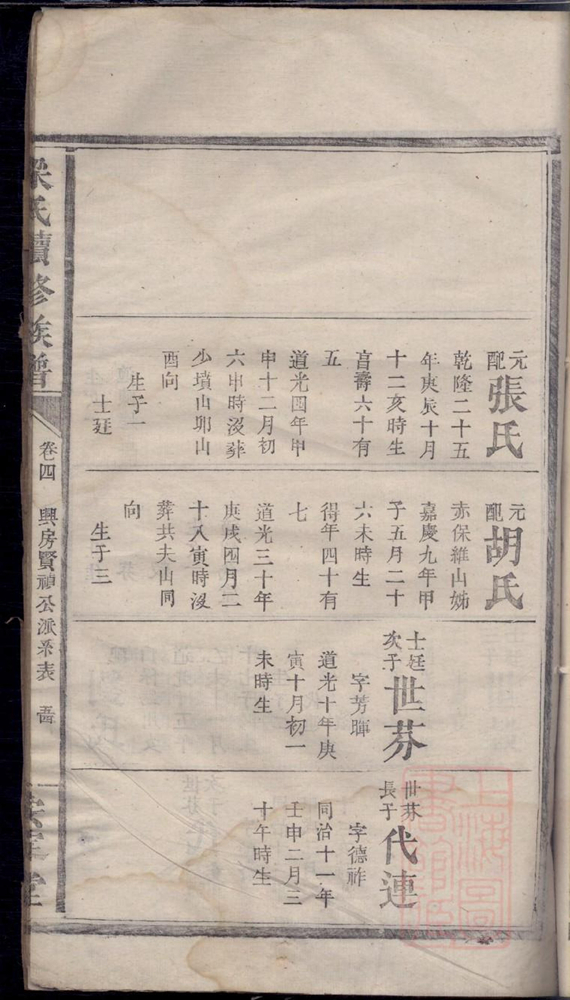 元配張氏
乾隆二十五
年庚辰十月
十二亥時生
享壽六十有
五
道光四年甲
申十二月初
六申時沒葬
少墳山卯山
酉向
生子一
士廷
元配胡氏
赤保維山姊
嘉慶九年甲
子五月二十
六未時生
得年四十有
七
道光三十年
庚戌四月二
十八寅時沒
葬共夫山同
向
生子三
士廷次子世芬
字芳暉
道光十年庚
寅十月初一
未時生
世芬長子代連
字德祚
同治十一年
壬申二月三
十午時生
氏續修族譜
卷四
興房賢禎公派系表
堂